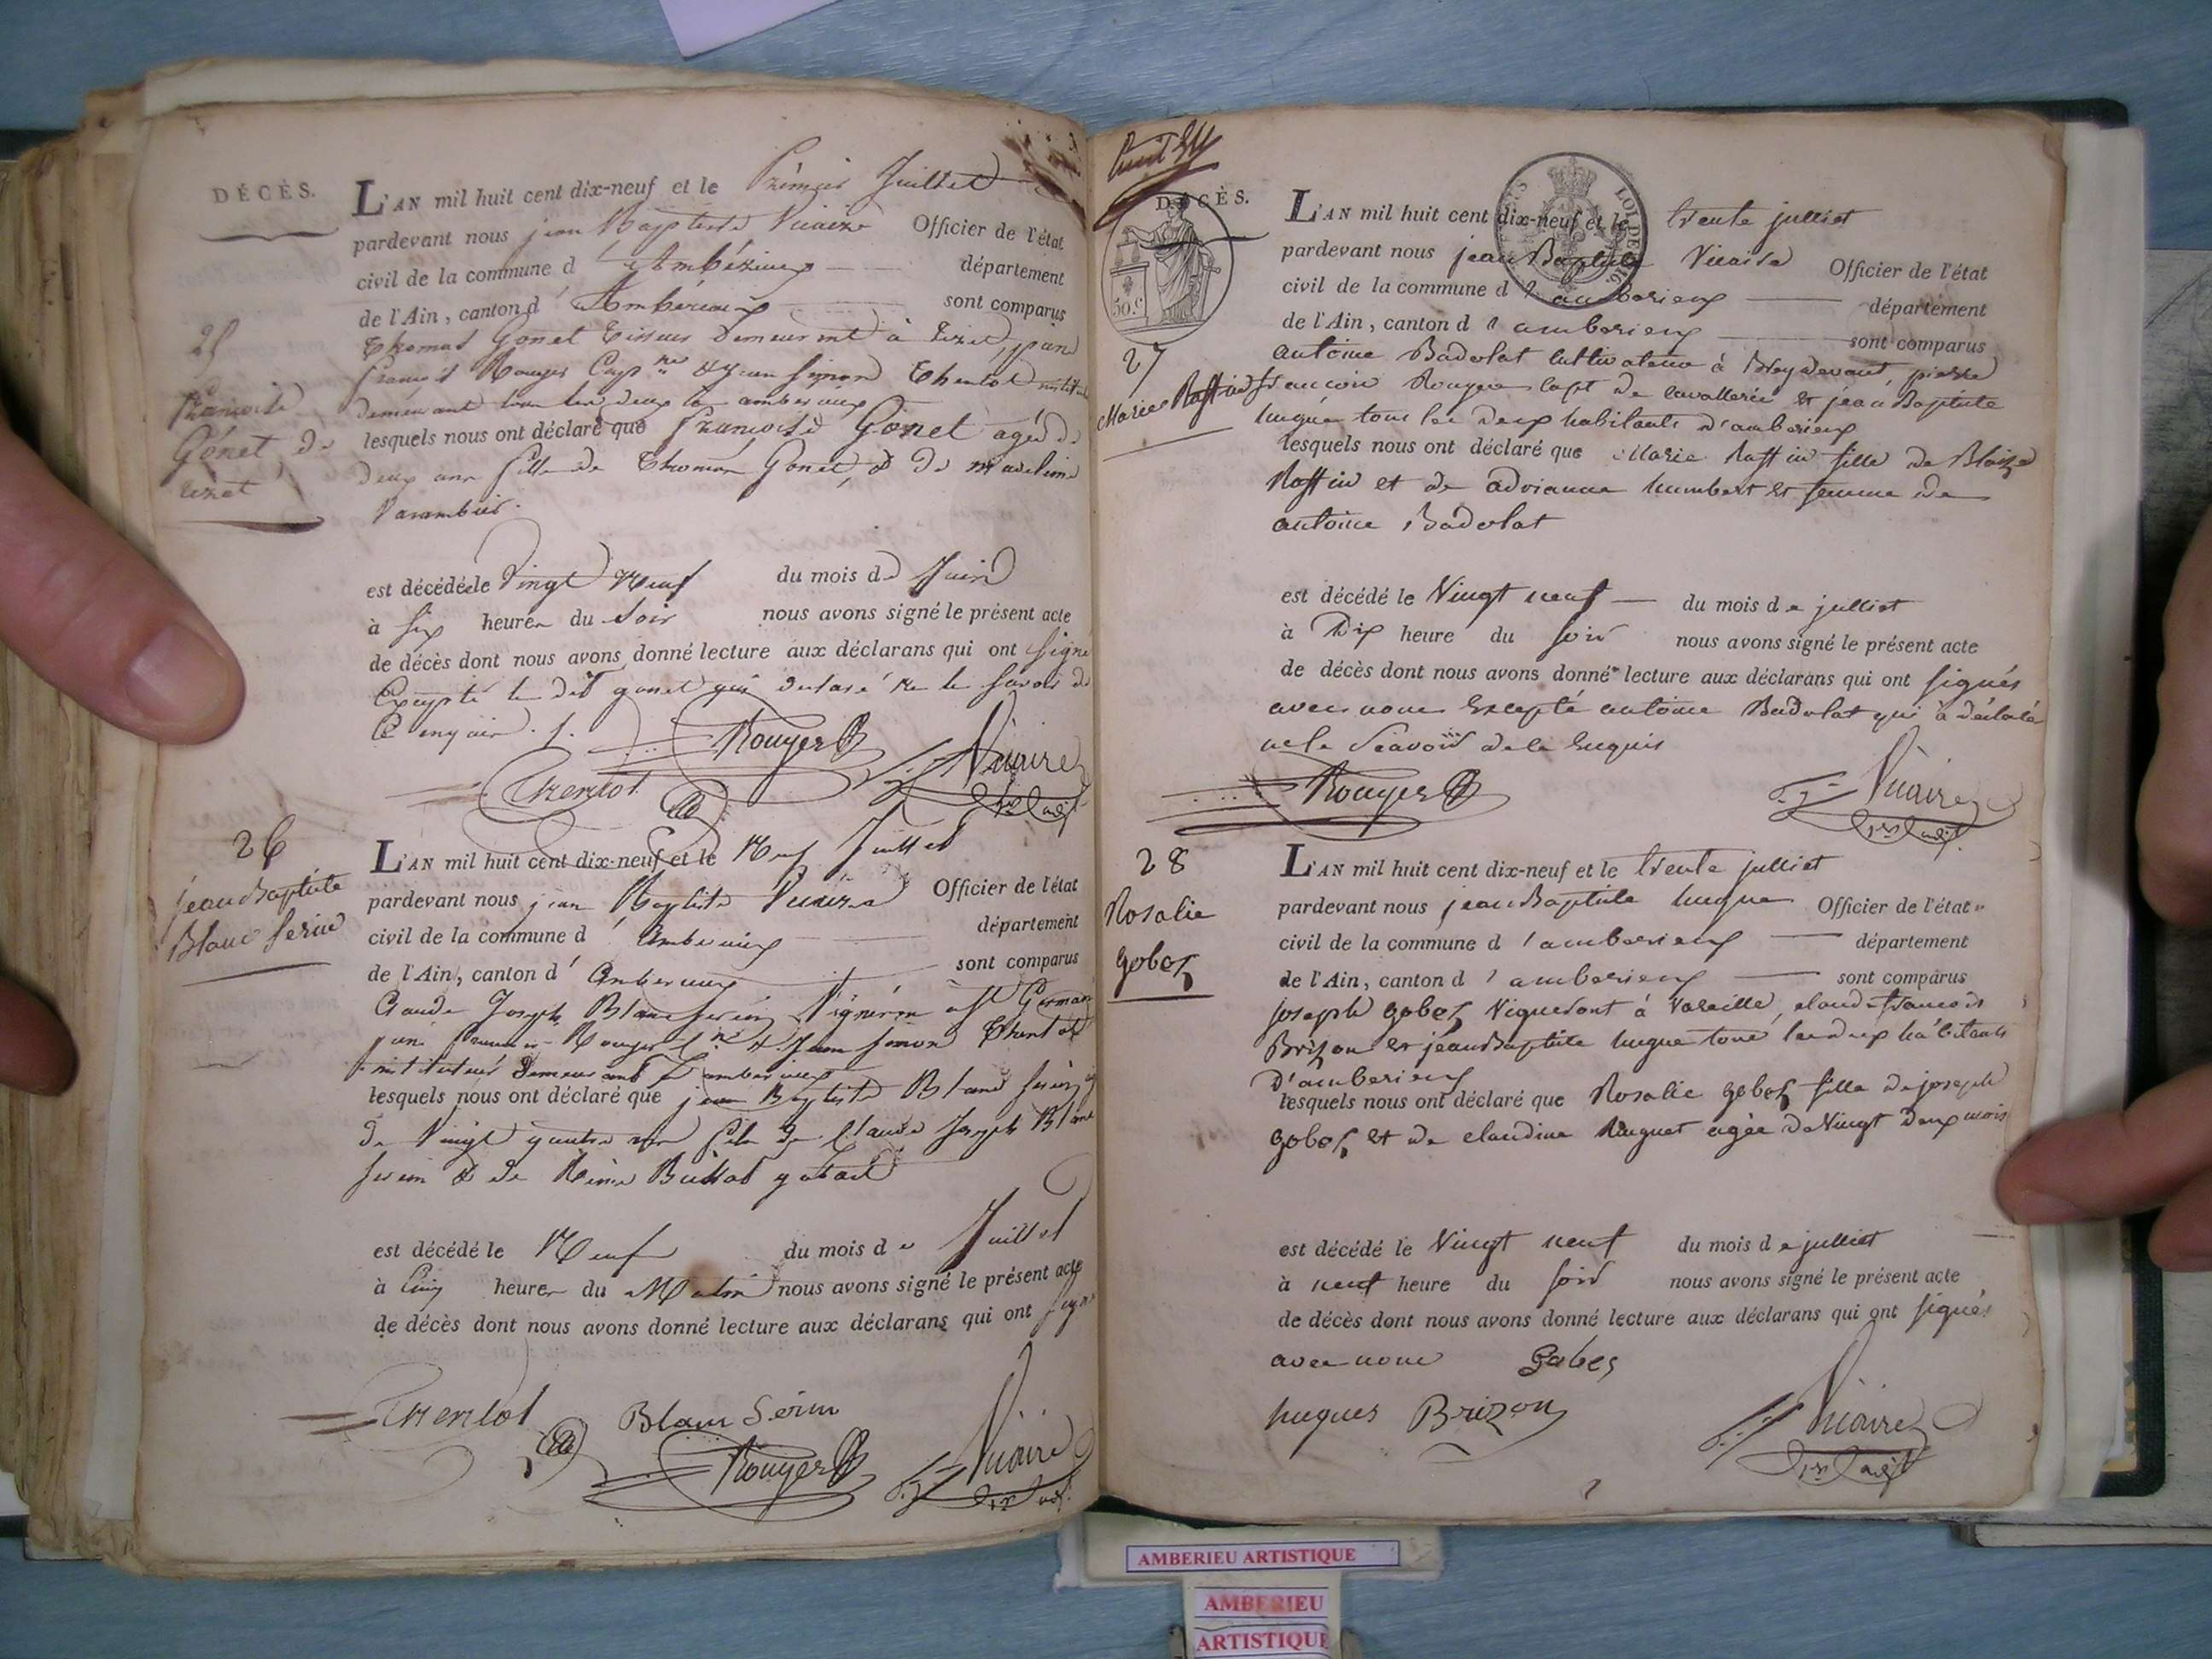 DÉCÈS.
L'AN mil huit cent dix-neuf et le Prémier Juillet
pardevant nous jean Baptiste Vicaire Officier de l'état
civil de la commune d' Ambérieux département
de l'Ain, canton d' Ambérieux sont comparus
25
Thomas Gonet Tisseur demeurant à Tiret,
François Rouyer Cap.ne & jean simon Thentot
demeurant tous les deux à amberieux
Françoise
Gonet de
tiret
lesquels nous ont déclaré que françoise Gonet agée de
deux ans fille de Thomas Gonet, & de madelene
Varambier.
est décédée le Vingt Neuf du mois de Juin
à six heures du Soir nous avons signé le présent acte
de décès dont nous avons donné lecture aux déclarans qui ont signé
Excepté le dit gonet qui declaré ne le savoir de
ce enquis ./.
Rouyer
Thentot
Vicaire
26
jean Baptiste
Blanc ferin
L'AN mil huit cent dix-neuf et le Neuf Juillet
pardevant nous jean Baptiste Vicaire Officier de l'état
civil de la commune d' Amberieux département
de l'Ain, canton d' Amberieux sont comparus
Claude Joseph Blanc ferin Vigneron a St Germain
Rouyer & Jean simon Thentot
instituteur demeurant a amberieux
lesquels nous ont déclaré que jean Baptiste Blanc ferin
de Vingt quatre ans fils de Claude Joseph Blanc
ferin & de Reine
est décédé le Neuf du mois de Juillet
à Cinq heures du Matin nous avons signé le présent acte
de décès dont nous avons donné lecture aux déclarans qui ont signé
Thentot
Blanc Serin
Rouyer
Vicaire
DÉCÈS.
50.c
LOI DE 1816
L'AN mil huit cent dix-neuf et le trente julliet
pardevant nous jean Baptiste Vicaire Officier de l'état
civil de la commune d'amberieux département
de l'Ain, canton d'amberieux sont comparus
27
Marie Raffin
antoine Badolat cultivateur à Breydevant, pierre
francois Rouyer capt de cavallerie et jean Baptiste
hugue tous les deux habitants d'amberieux
lesquels nous ont déclaré que Marie Raffin fille de Blaize
Raffin et de adrianne humbert et femme de
antoine Badolat
est décédé le Vingt neuf du mois de julliet
à Dix heure du soir nous avons signé le présent acte
de décès dont nous avons donné lecture aux déclarans qui ont signés
avec nous Excepté antoine Badolat qui à déclaré
ne le sçavoir de le Enquis
Rouyer
Vicaire
28
Rosalie
gobet
L'AN mil huit cent dix-neuf et le trente julliet
pardevant nous jean Baptiste hugue Officier de l'état
civil de la commune d'amberieux département
de l'Ain, canton d'amberieux sont comparus
joseph gobet Vigneront à Vareille, claude francois
Brizon et jean Baptiste hugue tous les deux habitants
d'amberieux
lesquels nous ont déclaré que Rosalie gobet fille de joseph
gobet et de claudine huguet agée de Vingt deux mois
est décédé le Vingt neuf du mois de julliet
à neuf heure du soir nous avons signé le présent acte
de décès dont nous avons donné lecture aux déclarans qui ont signés
avec nous Gobet
hugues Brizon
Vicaire
AMBERIEU ARTISTIQUE
AMBERIEU
ARTISTIQUE